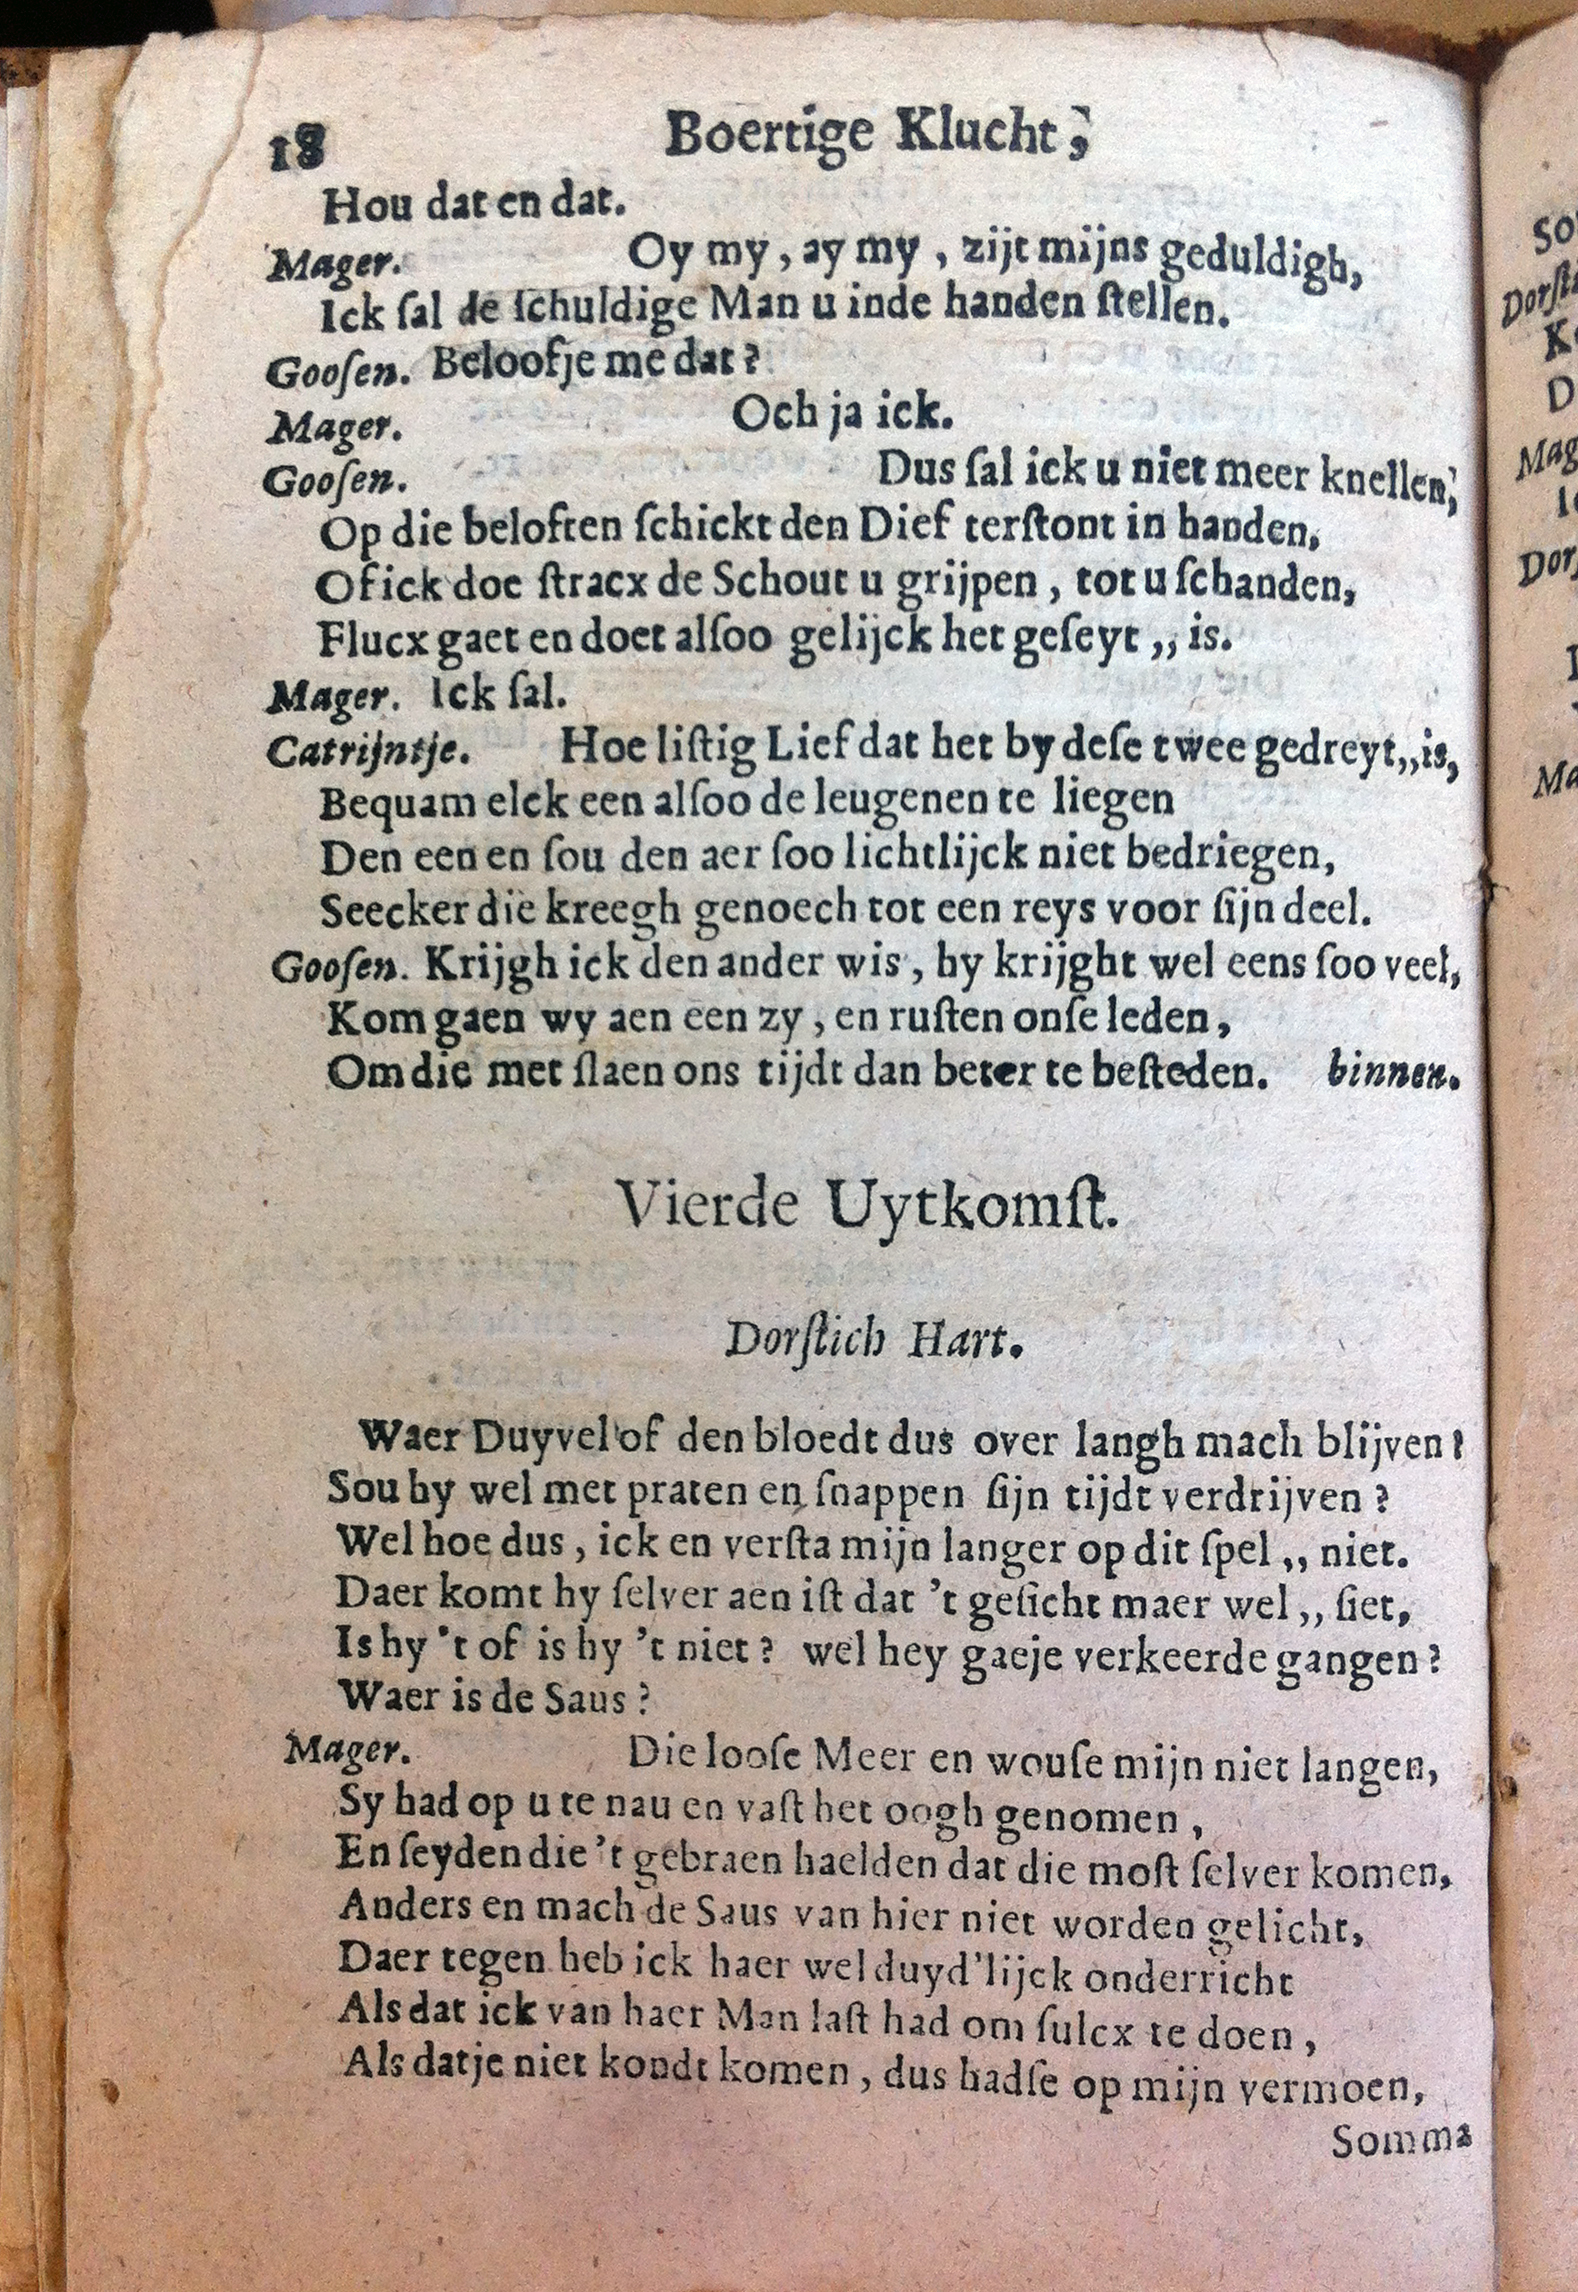 18 Boertige Klucht,
Hou dat en dat.
Mager. Oy my, ay my, zijt mijns geduldigh,
Ick ſal de ſchuldige Man u inde handen ſtellen.
Gooſen. Beloofje me dat?
Mager. Och ja ick.
Gooſen. Dus ſal ick u niet meer knellen,
Op die beloften ſchickt den Dief terſtont in handen,
Of ick doe ſtracx de Schout u grijpen, tot u ſchanden,
Flucx gaet en doet alſoo gelijck het geſeyt,, is.
Mager. Ick ſal.
Catrijntje. Hoe liſtig Lief dat het by deſe twee gedreyt,, is,
Bequam elck een alſoo de leugenen te liegen
Den een en ſou den aer ſoo lichtlijck niet bedriegen,
Seecker die kreegh genoech tot een reys voor ſijn deel.
Gooſen. Krijgh ick den ander wis, hy krijght wel eens ſoo veel,
Kom gaen wy aen een zy, en ruſten onſe leden,
Om die met ſlaen ons tijdt dan beter te beſteden. binnen.
Vierde Uytkomſt.
Dorſtich Hart.
Waer Duyvel of den bloedt dus over langh mach blijven?
Sou hy wel met praten en ſnappen ſijn tijdt verdrijven?
Wel hoe dus, ick en verſta mijn langer op dit ſpel,, niet.
Daer komt hy ſelver aen iſt dat 't geſicht maer wel,, ſiet,
Is hy 't of is hy 't niet? wel hey gaeje verkeerde gangen?
Waer is de Saus?
Mager. Die looſe Meer en wouſe mijn niet langen,
Sy had op u te nau en vaſt het oogh genomen,
En ſeyden die 't gebraen haelden dat die moſt ſelver komen,
Anders en mach de Saus van hier niet worden gelicht,
Daer tegen heb ick haer wel duyd'lijck onderricht
Als dat ick van haer Man laſt had om ſulcx te doen,
Als datje niet kondt komen, dus hadſe op mijn vermoen,
Somma
So
Dorſti
K
D
Mag
Ic
Dorſ
Ma